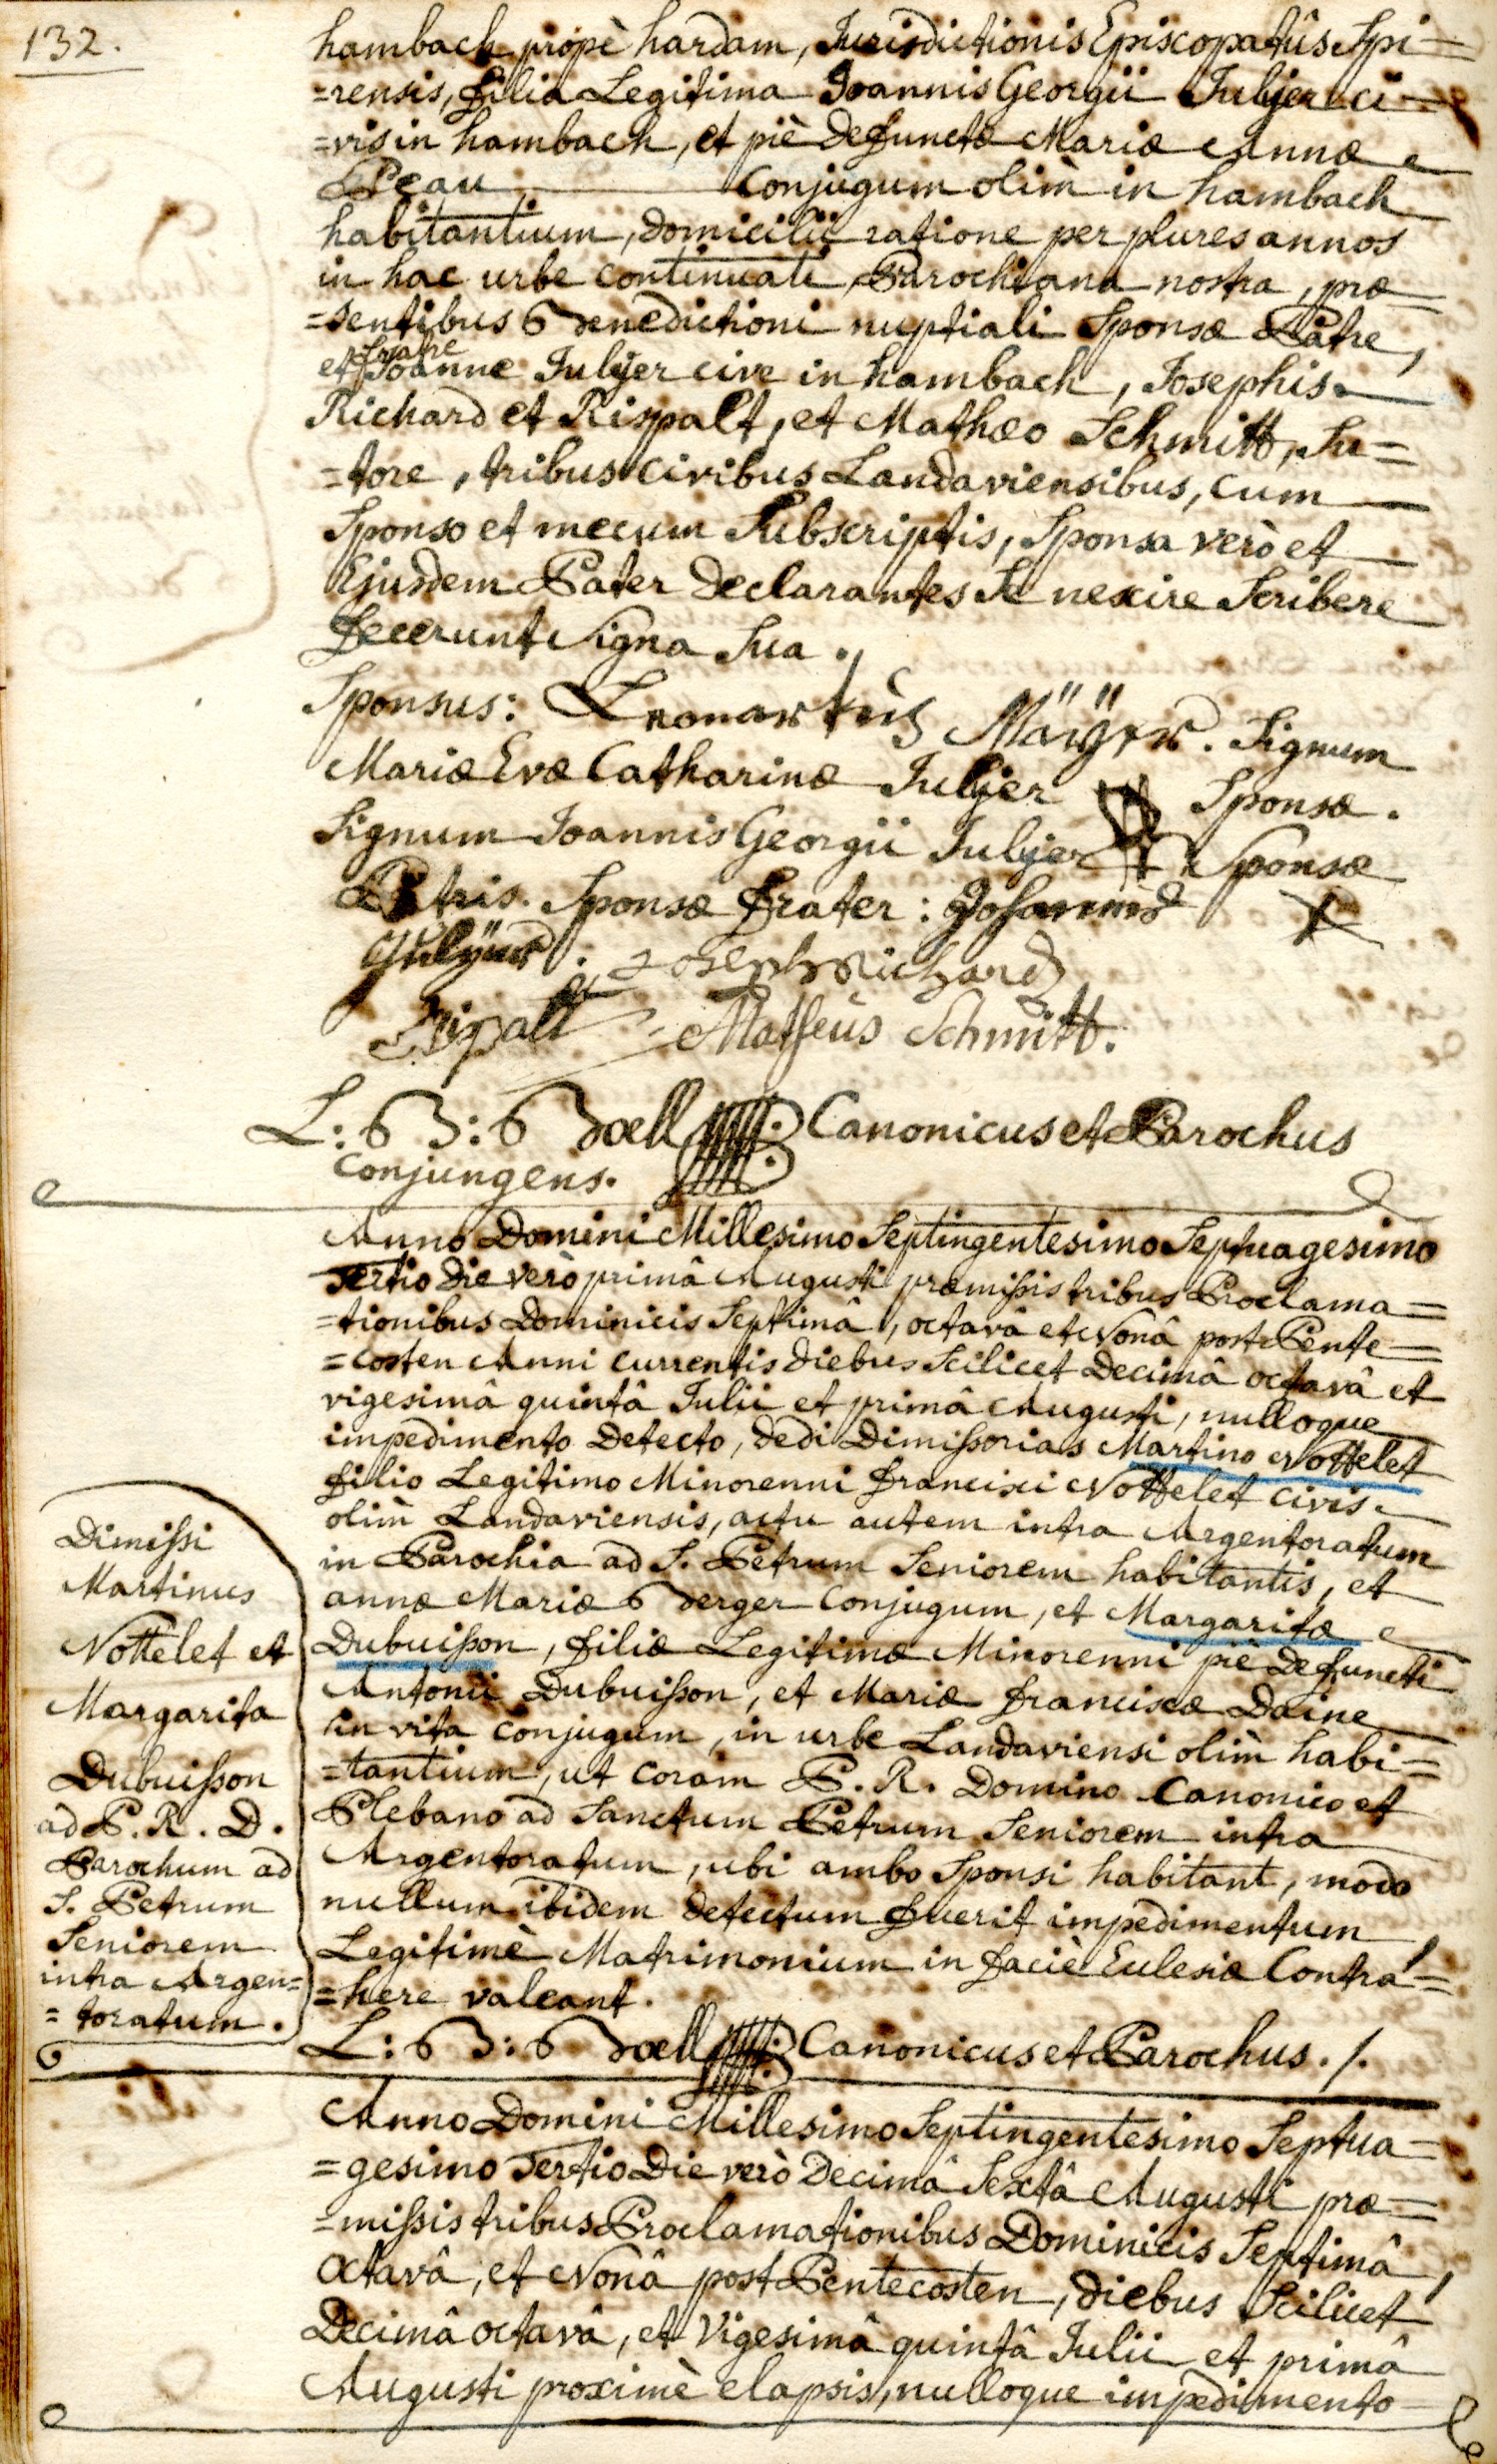 132.
hambach propè hardam, Jurisdictionis Episcopatûs Spi=
=rensis, filia Legitima Joannis Georgii Julyer ci=
=vis in hambach, et piè defunctæ Mariæ Annæ
Peau ——— Conjugum olim in hambach
habitantium, domicilii ratione per plures annos
in hac urbe continuati Parochiana nostra, præ=
=sentibus Benedictioni nuptiali Sponsæ Patre,
fratre
et Joanne Julyer cive in hambach, Josephis
Richard et Rispalt, et Mathæo Schmitt, Su=
=tore, tribus civibus Landaviensibus, cum
Sponso et mecum Subscriptis, Sponsa verò et
Ejusdem Pater declarantes Se nescire Scribere
fecerunt Signa Sua.
Sponsus: Leonartus Mäÿer. Signum
Mariæ Evæ Catharinæ Julyer Sponsæ.
Signum Joannis Georgii Julyer Sponsæ
Patris. Sponsæ frater: Johannes
Julyer. Joseph Richard
Rispalt Matheus Schmitt.
L: B: Boell Canonicus et Parochus
Conjungens.
Anno Domini Millesimo Septingentesimo Septuagesimo
Tertio die verò primâ Augusti præmissis tribus Proclama=
=tionibus Dominicis Septimâ, octavâ et Nonâ post Pente=
=costen Anni currentis diebus Scilicet Decimâ octavâ et
vigesimâ quintâ Julii et primâ Augusti, nulloque
impedimento detecto, dedi Dimissorias Martino Nottelet
filio Legitimo Minorenni francisci Nottelet civis
olim Landaviensis, actu autem intra Argentoratum
in Parochia ad S. Petrum Seniorem habitantis, et
annæ Mariæ Berger Conjugum, et Margaritæ
Dubuisson, filiæ Legitimæ Minorenni piè defuncti
Antonii Dubuisson, et Mariæ franciscæ Daine
in vita conjugum, in urbe Landaviensi olim habi=
=tantium, ut coram P. R. Domino Canonico et
Plebano ad Sanctum Petrum Seniorem intra
Argentoratum, ubi ambo Sponsi habitant, modo
nullum ibidem detectum fuerit impedimentum,
Legitimè Matrimonium in facie Eclesiæ Contra=
=here valeant.
L: B: Boell Canonicus et Parochus. /.
Dimissi
Martinus
Nottelet et
Margarita
Dubuisson
ad P. R. D.
Parochum ad
S. Petrum
Seniorem
intra Argen=
=toratum.
Anno Domini Millesimo Septingentesimo Septua=
=gesimo Tertio Die verò Decimâ Sextâ Augusti præ=
=missis tribus Proclamationibus Dominicis Septimâ,
Octavâ, et Nonâ post Pentecosten, diebus Scilicet
Decimâ octavâ, et Vigesimâ quintâ Julii et primâ
Augusti proximè elapsis, nulloque impedimento